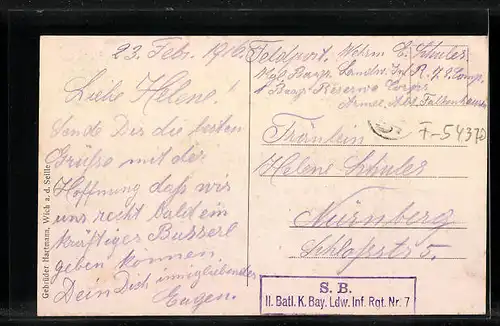 23. Febr. 1916.
Liebe Helene!
Sende Dir die besten
Grüße mit der
Hoffnung daß wir
uns recht bald ein
kräftiges Busserl
geben können.
Dein Dich innigliebender
Eugen.
Feldpost. Wehrm. E. Schuler
Kgl. Bayr. Landw. Inf. R. 7, 8. Comp.
1 Bayr. Reserve Corps
Armee Abt. Falkenhausen
F-5437
Fräulein
Helene Schuler
Nürnberg
Schloßstr 5.
S. B.
II. Batl. K. Bay. Ldw. Inf. Rgt. Nr. 7
Gebrüder Hartmann, Wich a. d. Seille